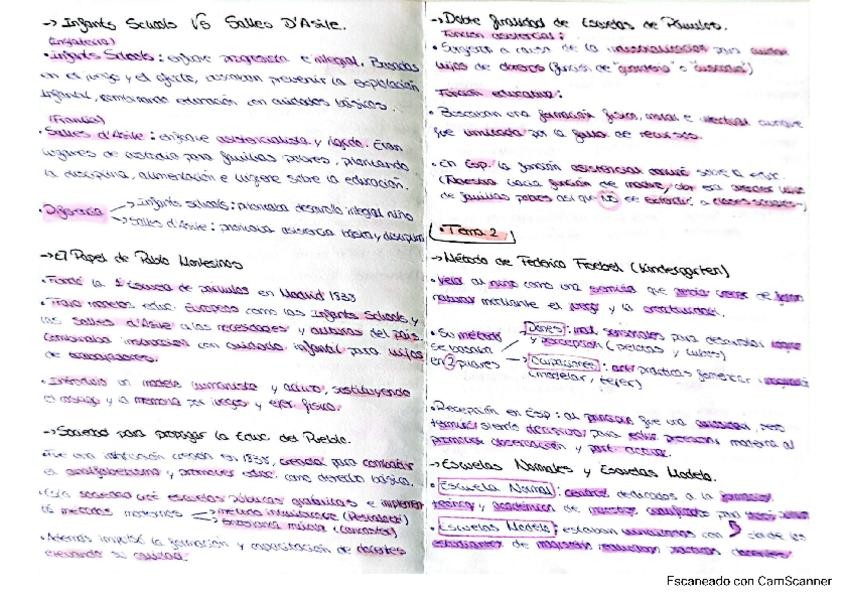 → Infants Schools VS Salles D'Asile.
(Inglaterra)
• Infants Schools: enfoque progresista e integral. Basados
en el juego y el afecto, buscaban prevenir la explotación
infantil, combinando educación con cuidados básicos.
(Francia)
• Salles d'Asile: enfoque asistencialista y rígido. Eran
lugares de custodia para familias pobres, priorizando
la disciplina, alimentación e higiene sobre la educación.
• Diferencia → Infants schools: priorizaba desarrollo integral niño
→ Salles d'Asile: priorizaba asistencia básica y disciplina
→ El Papel de Pablo Montesinos
• Fundó la 1ª Escuela de párvulos en Madrid
• Trajo modelos educ. Europeos como las Infants Schools y
las Salles d'Asile a las necesidades y culturas del país.
Combinaba instrucción con cuidado infantil para hijos
de trabajadores.
• Introdujo un modelo humanista y activo, sustituyendo
el castigo y la memoria por juegos y ejer. físico.
→ Sociedad para propagar la Educ. del Pueblo.
Fue una institución creada en 1838, creada para combatir
el analfabetismo y promover educ. como derecho básico.
• Esta sociedad creó escuelas públicas gratuitas e
métodos modernos → método (Pestalozzi)
→ enseñanza mutua (Lancaster)
• Además impulsó la formación y capacitación de docentes
elevando su calidad.
→ Doble finalidad de Escuelas de Párvulos.
Función asistencial:
• Surgieron a causa de la industrialización para cuidar
hijos de obreros (función de "guardería" o "custodia")
Función educativa:
• Buscaban una formación física, moral e intelectual aunque
fue limitada por la falta de recursos.
• En Esp. la función asistencial dominó sobre la educ.
(Maestra hacía función de madre,
de familias pobres así que no se extendió a clases sociales)
• Tema 2
→ Método de Federico Froebel (Kindergarten)
• Veía al niño como una semilla que debía crecer de forma
natural mediante el juego y la creatividad.
• Su método se basaba en 2 pilares → Dones: mat. sensoriales para desarrollar
y percepción (pelotas y cubos)
→ Ocupaciones: act. prácticas fomentar
(modelar, tejer)
• Recepción en Esp: al principio fue una curiosidad, pero
terminó siendo decisivo para
promover observación y part. activa.
→ Escuelas Normales y Escuelas Modelo.
• Escuela Normal: centros dedicados a la formación
teórica y académica de maestros cualificados para
• Escuelas Modelo: estaban vinculadas con donde los
estudiantes de magisterio realizaban prácticas docentes
Escaneado con CamScanner